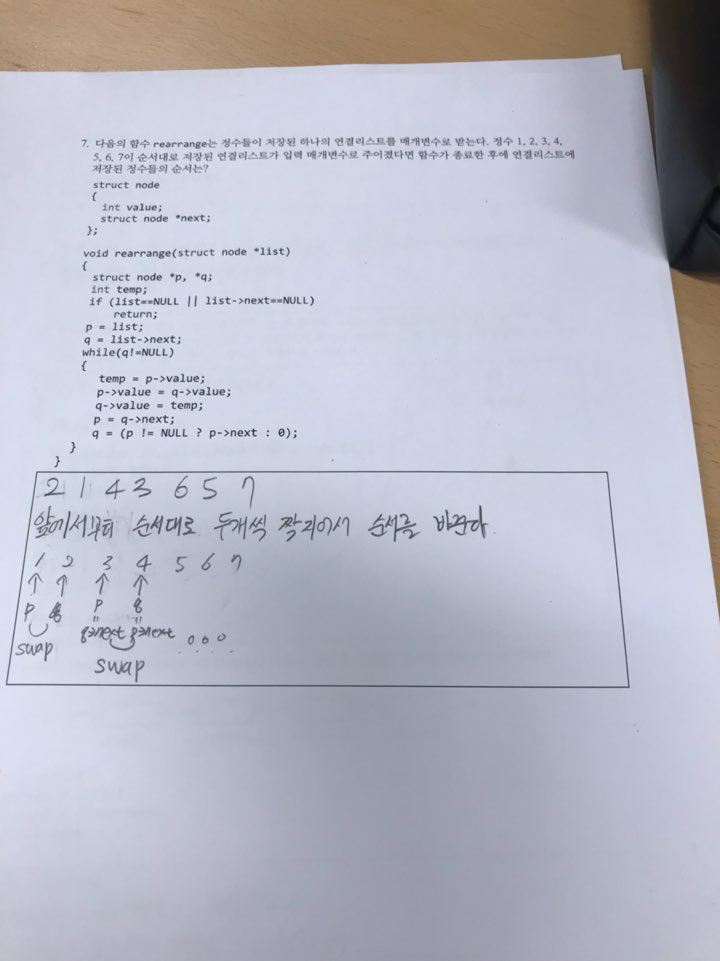 7. 다음의 함수 rearrange는 정수들이 저장된 하나의 연결리스트를 매개변수로 받는다. 정수 1, 2, 3, 4,
5, 6, 7이 순서대로 저장된 연결리스트가 입력 매개변수로 주어졌다면 함수가 종료한 후에 연결리스트에
저장된 정수들의 순서는?
struct node
{
int value;
struct node *next;
};
void rearrange(struct node *list)
{
struct node *p, *q;
int temp;
if (list==NULL || list->next==NULL)
return;
p = list;
q = list->next;
while(q!=NULL)
{
temp = p->value;
p->value = q->value;
q->value = temp;
p = q->next;
q = (p != NULL ? p->next : 0);
}
}
2 1 4 3 6 5 7
앞에서부터 순서대로 두개씩 짝지어서 순서를 바꾼다
1 2 3 4 5 6 7
↑ ↑ ↑ ↑
p q p q
" "
swap q->next p->next ...
swap